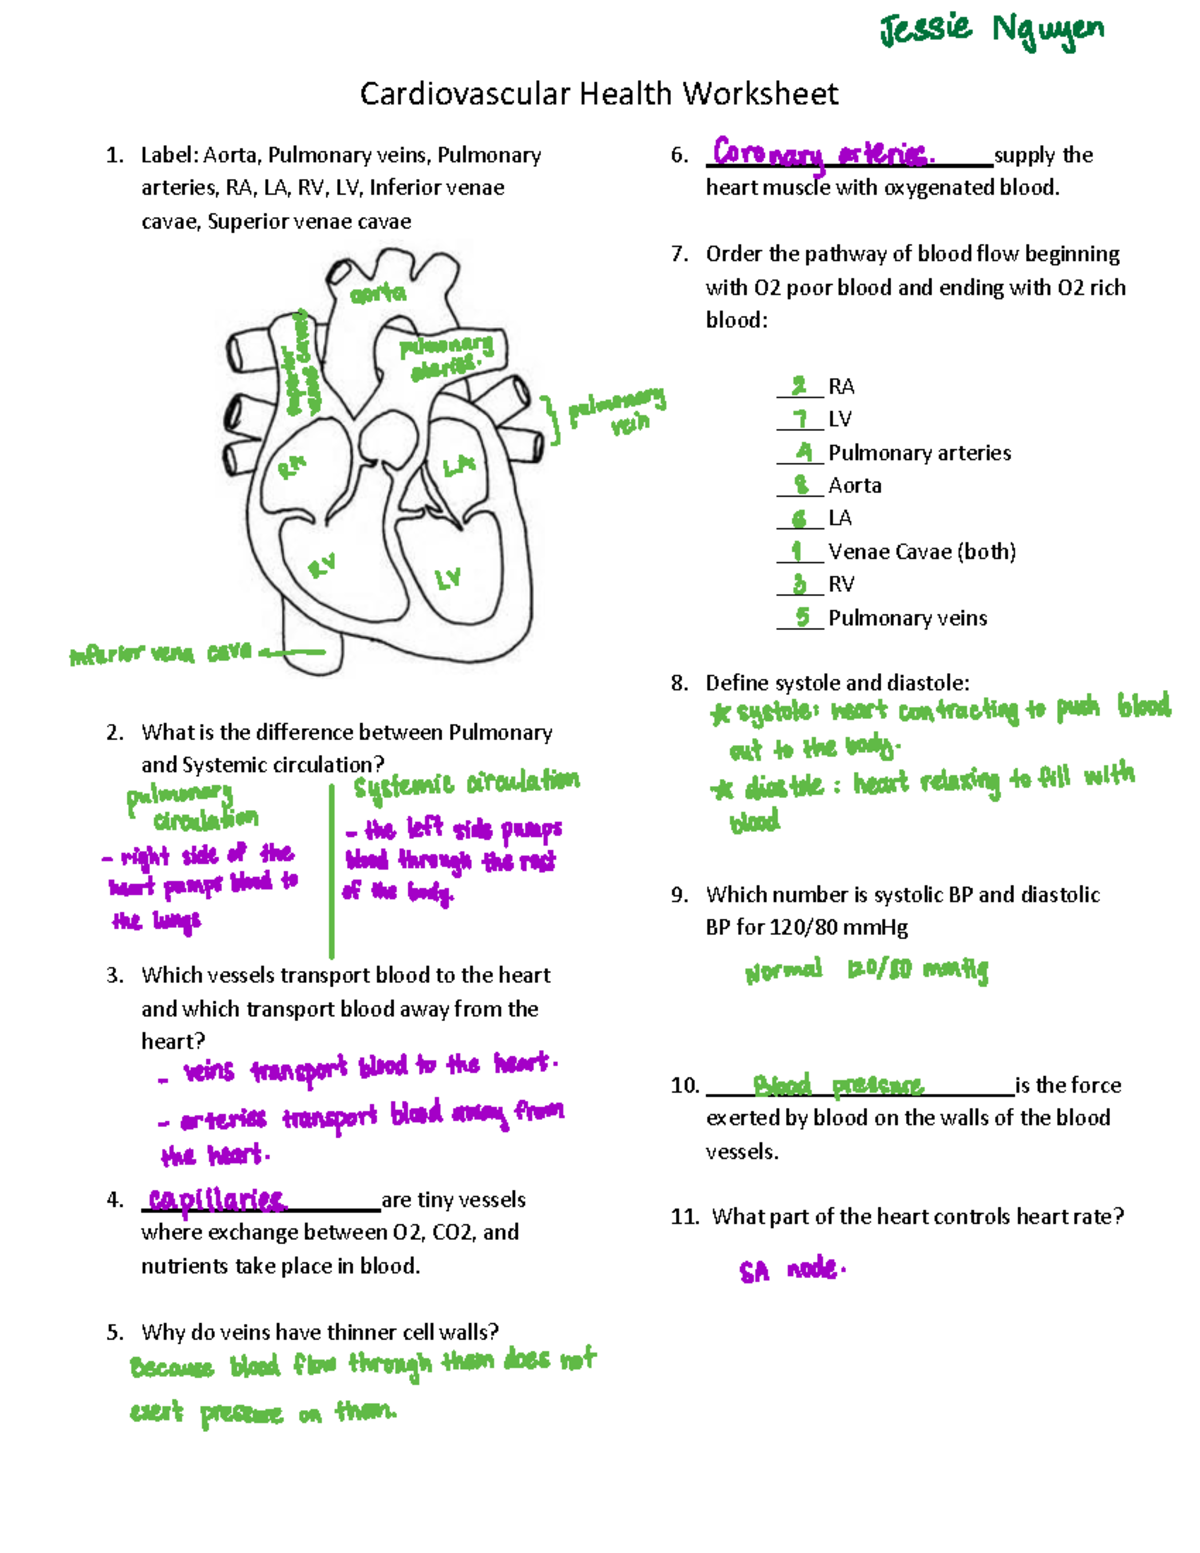 Jessie Nguyen
Cardiovascular Health Worksheet
1. Label: Aorta, Pulmonary veins, Pulmonary
arteries, RA, LA, RV, LV, Inferior venae
cavae, Superior venae cavae
aorta
superior
venae cavae
pulmonary
ateries.
pulmonary
vein
RA
LA
RV
LV
Inferior vena cava
2. What is the difference between Pulmonary
and Systemic circulation?
pulmonary
circulation
- right side of the
heart pumps blood to
the lungs
systemic circulation
- the left side pumps
blood through the rest
of the body.
3. Which vessels transport blood to the heart
and which transport blood away from the
heart?
- veins transport blood to the heart.
- arteries transport blood away from
the heart.
4. capillaries are tiny vessels
where exchange between O2, CO2, and
nutrients take place in blood.
5. Why do veins have thinner cell walls?
Because blood flow through them does not
exert pressure on them.
6. Coronary arteries. supply the
heart muscle with oxygenated blood.
7. Order the pathway of blood flow beginning
with O2 poor blood and ending with O2 rich
blood:
2 RA
7 LV
4 Pulmonary arteries
8 Aorta
6 LA
1 Venae Cavae (both)
3 RV
5 Pulmonary veins
8. Define systole and diastole:
* systole: heart contracting to push blood
out to the body.
* diastole: heart relaxing to fill with
blood
9. Which number is systolic BP and diastolic
BP for 120/80 mmHg
Normal 120/80 mmHg
10. Blood pressure is the force
exerted by blood on the walls of the blood
vessels.
11. What part of the heart controls heart rate?
SA node.